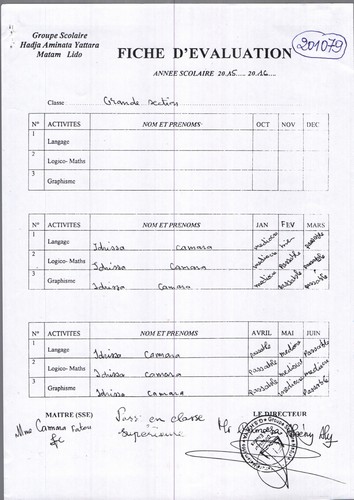 Groupe Scolaire
Hadja Aminata Yattara
Matam Lido
FICHE D'EVALUATION
201079
ANNEE SCOLAIRE 2015.... 2016....
Classe Grande Section
N° ACTIVITES NOM ET PRENOMS OCT NOV DEC
1 Langage
2 Logico- Maths
3 Graphisme
N° ACTIVITES NOM ET PRENOMS JAN FEV MARS
1 Langage Idrissa Camara mediocre bien passable
2 Logico- Maths Idrissa Camara mediocre passable
3 Graphisme Idrissa Camara passable passable
N° ACTIVITES NOM ET PRENOMS AVRIL MAI JUIN
1 Langage Idrissa Camara passable mediocre Passable
2 Logico- Maths Idrissa Camara passable mediocre mediocre
3 Graphisme Idrissa Camara passable mediocre Passable
MAITRE (SSE) LE DIRECTEUR
Mme Camara Fatou
Pass' en classe
supérieure
Mr Aly